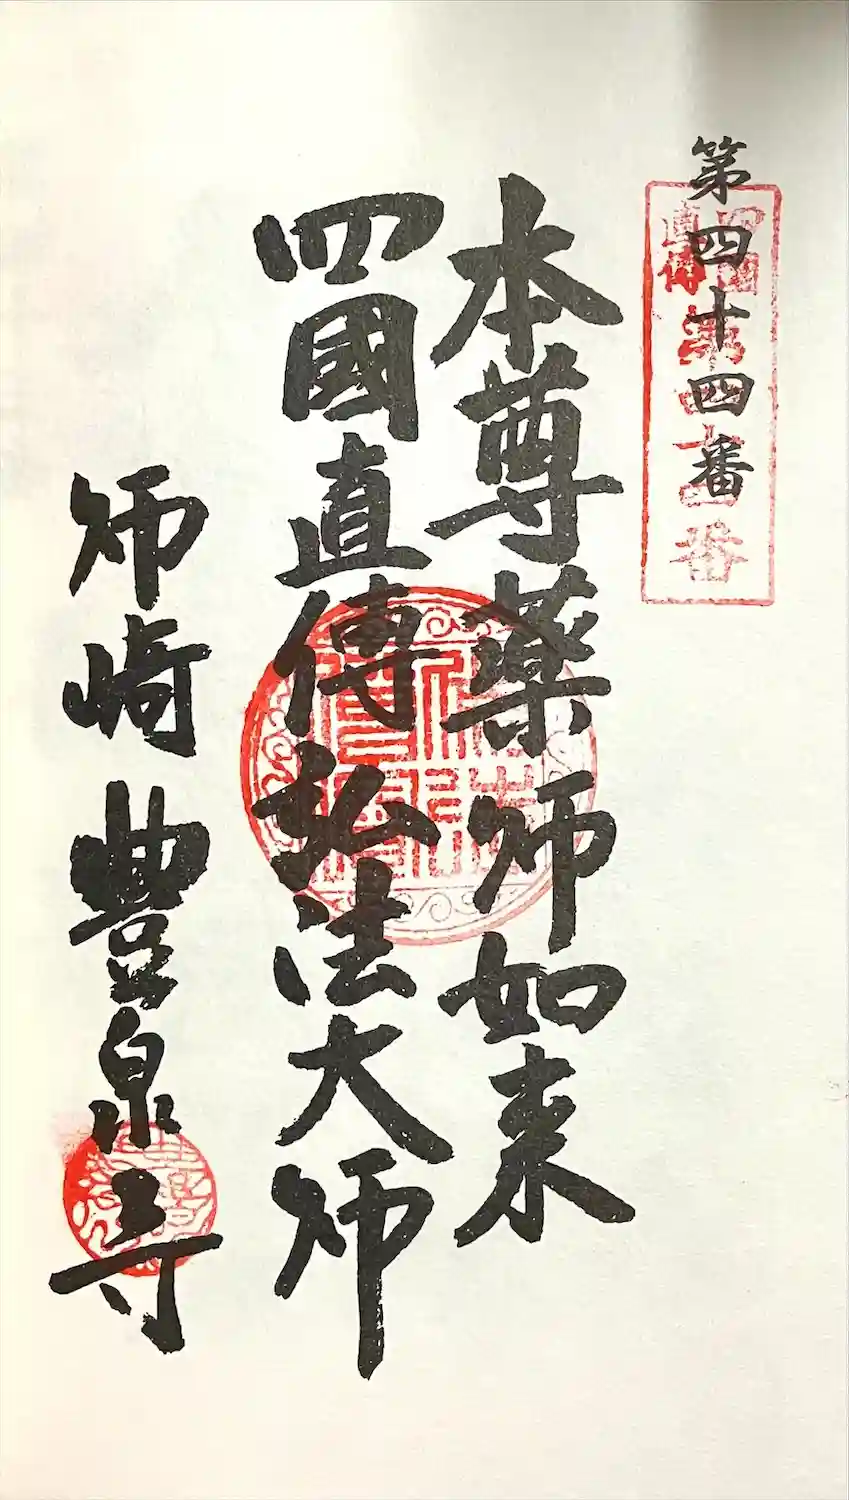 第四十四番
本尊薬师如来
四國直傳弘法大师
师崎豊泉寺